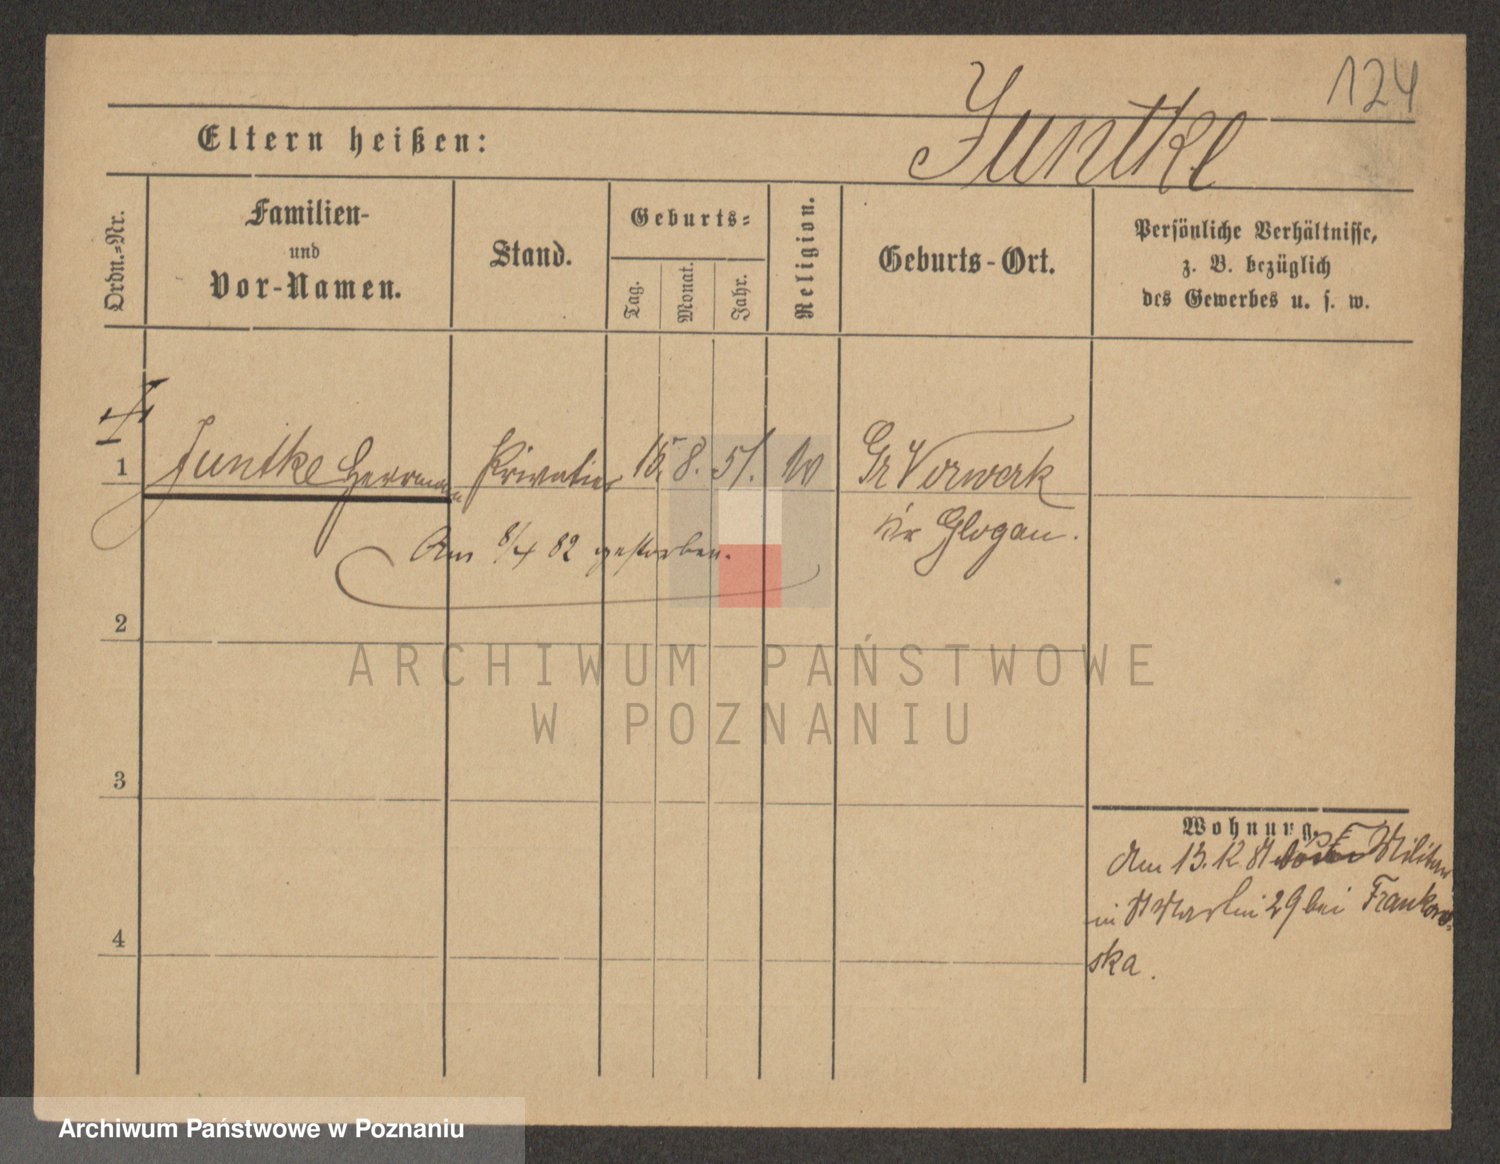 124
Juntke
Eltern heißen:
Ordn.-Nr.
Familien-
und
Vor-Namen.
Stand.
Geburts-
Tag.
Monat.
Jahr.
Religion.
Geburts-Ort.
Persönliche Verhältnisse,
z. B. bezüglich
des Gewerbes u. s. w.
1 Juntke Herrmann Privatier 15. 8. 51. Gr Vorwerk
Kr Glogau.
Am 8/4 82 gestorben.
2
ARCHIWUM PAŃSTWOWE
W POZNANIU
3
Wohnung.
Am 13. 12. 81
in St Martin 29 bei Frankows-
ska.
4
Archiwum Państwowe w Poznaniu